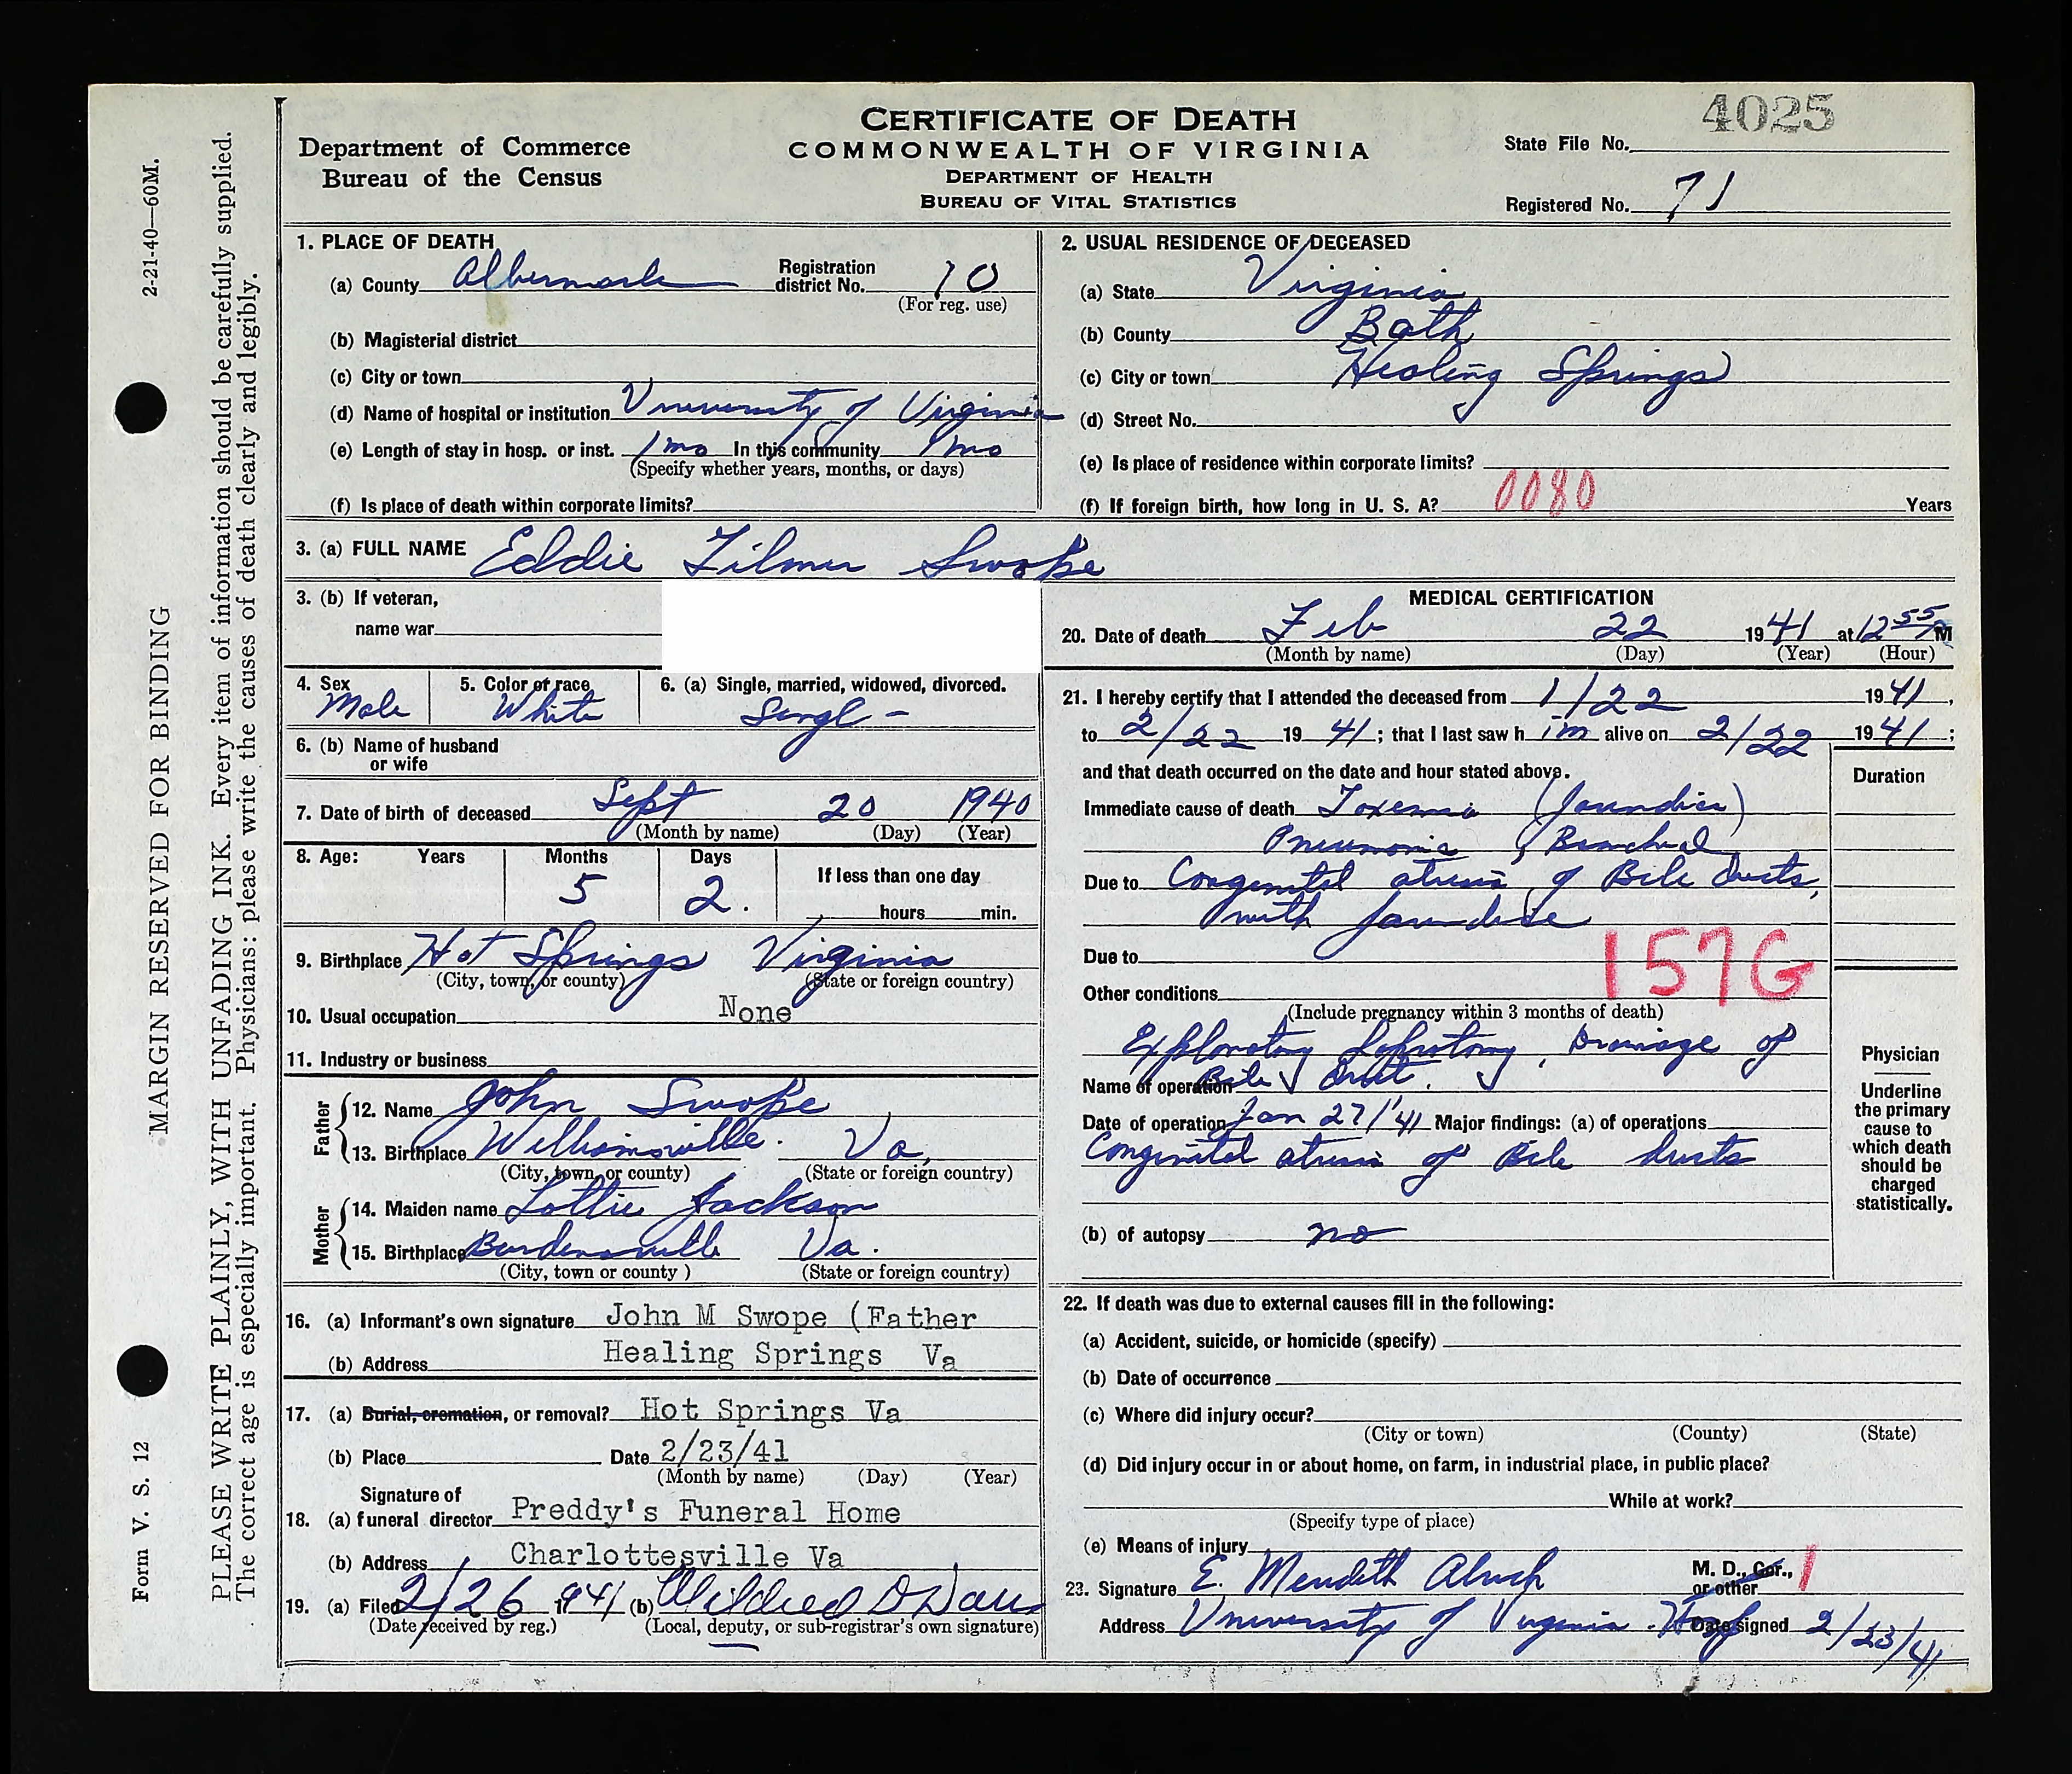 2-21-40—60M.
MARGIN RESERVED FOR BINDING
Form V. S. 12
PLEASE WRITE PLAINLY, WITH UNFADING INK. Every item of information should be carefully supplied.
The correct age is especially important. Physicians: please write the causes of death clearly and legibly.
Department of Commerce
Bureau of the Census
CERTIFICATE OF DEATH
COMMONWEALTH OF VIRGINIA
DEPARTMENT OF HEALTH
BUREAU OF VITAL STATISTICS
4025
State File No.
Registered No. 71
1. PLACE OF DEATH
(a) County Albermarle Registration district No. 70
(For reg. use)
(b) Magisterial district
(c) City or town
(d) Name of hospital or institution University of Virginia
(e) Length of stay in hosp. or inst. 1 mo In this community 1 mo
(Specify whether years, months, or days)
(f) Is place of death within corporate limits?
2. USUAL RESIDENCE OF DECEASED
(a) State Virginia
(b) County Bath
(c) City or town Healing Springs
(d) Street No.
(e) Is place of residence within corporate limits?
(f) If foreign birth, how long in U. S. A? 0080 Years
3. (a) FULL NAME Eddie Filmer Swope
3. (b) If veteran,
name war
4. Sex Male
5. Color or race White
6. (a) Single, married, widowed, divorced. Singl -
6. (b) Name of husband
or wife
7. Date of birth of deceased Sept 20 1940
(Month by name) (Day) (Year)
8. Age: Years Months Days If less than one day
5 2. hours min.
9. Birthplace Hot Springs Virginia
(City, town, or county) (State or foreign country)
10. Usual occupation None
11. Industry or business
Father
12. Name John Swope
13. Birthplace Williamsville. Va.
(City, town, or county) (State or foreign country)
Mother
14. Maiden name Lottie Jackson
15. Birthplace Burdensville Va.
(City, town or county ) (State or foreign country)
16. (a) Informant's own signature John M Swope (Father
(b) Address Healing Springs Va
17. (a) Burial, cremation, or removal? Hot Springs Va
(b) Place Date 2/23/41
(Month by name) (Day) (Year)
Signature of
18. (a) funeral director Preddy's Funeral Home
(b) Address Charlottesville Va
19. (a) Filed 2/26 1941 (b) Mildred D
(Date received by reg.) (Local, deputy, or sub-registrar's own signature)
MEDICAL CERTIFICATION
20. Date of death Feb 22 1941 at 12 55 M
(Month by name) (Day) (Year) (Hour)
21. I hereby certify that I attended the deceased from 1/22 1941,
to 2/22 1941; that I last saw him alive on 2/22 1941;
and that death occurred on the date and hour stated above.
Duration
Immediate cause of death Toxemia (Jaundice)
Pneumonia, Bronchial
Due to Congenital atresia of Bile ducts,
with Jaundice
Due to
157G
Other conditions
(Include pregnancy within 3 months of death)
Exploratory Laparotomy, Drainage of
Name of operation Bile Duct.
Date of operation Jan 27/'41 Major findings: (a) of operations
Congenital atresia of Bile ducts
(b) of autopsy no
Physician
Underline
the primary
cause to
which death
should be
charged
statistically.
22. If death was due to external causes fill in the following:
(a) Accident, suicide, or homicide (specify)
(b) Date of occurrence
(c) Where did injury occur?
(City or town) (County) (State)
(d) Did injury occur in or about home, on farm, in industrial place, in public place?
While at work?
(Specify type of place)
(e) Means of injury
23. Signature E. Meredith M. D., Cor., 1
or other
Address University of Virginia Hosp Date signed 2/23/41